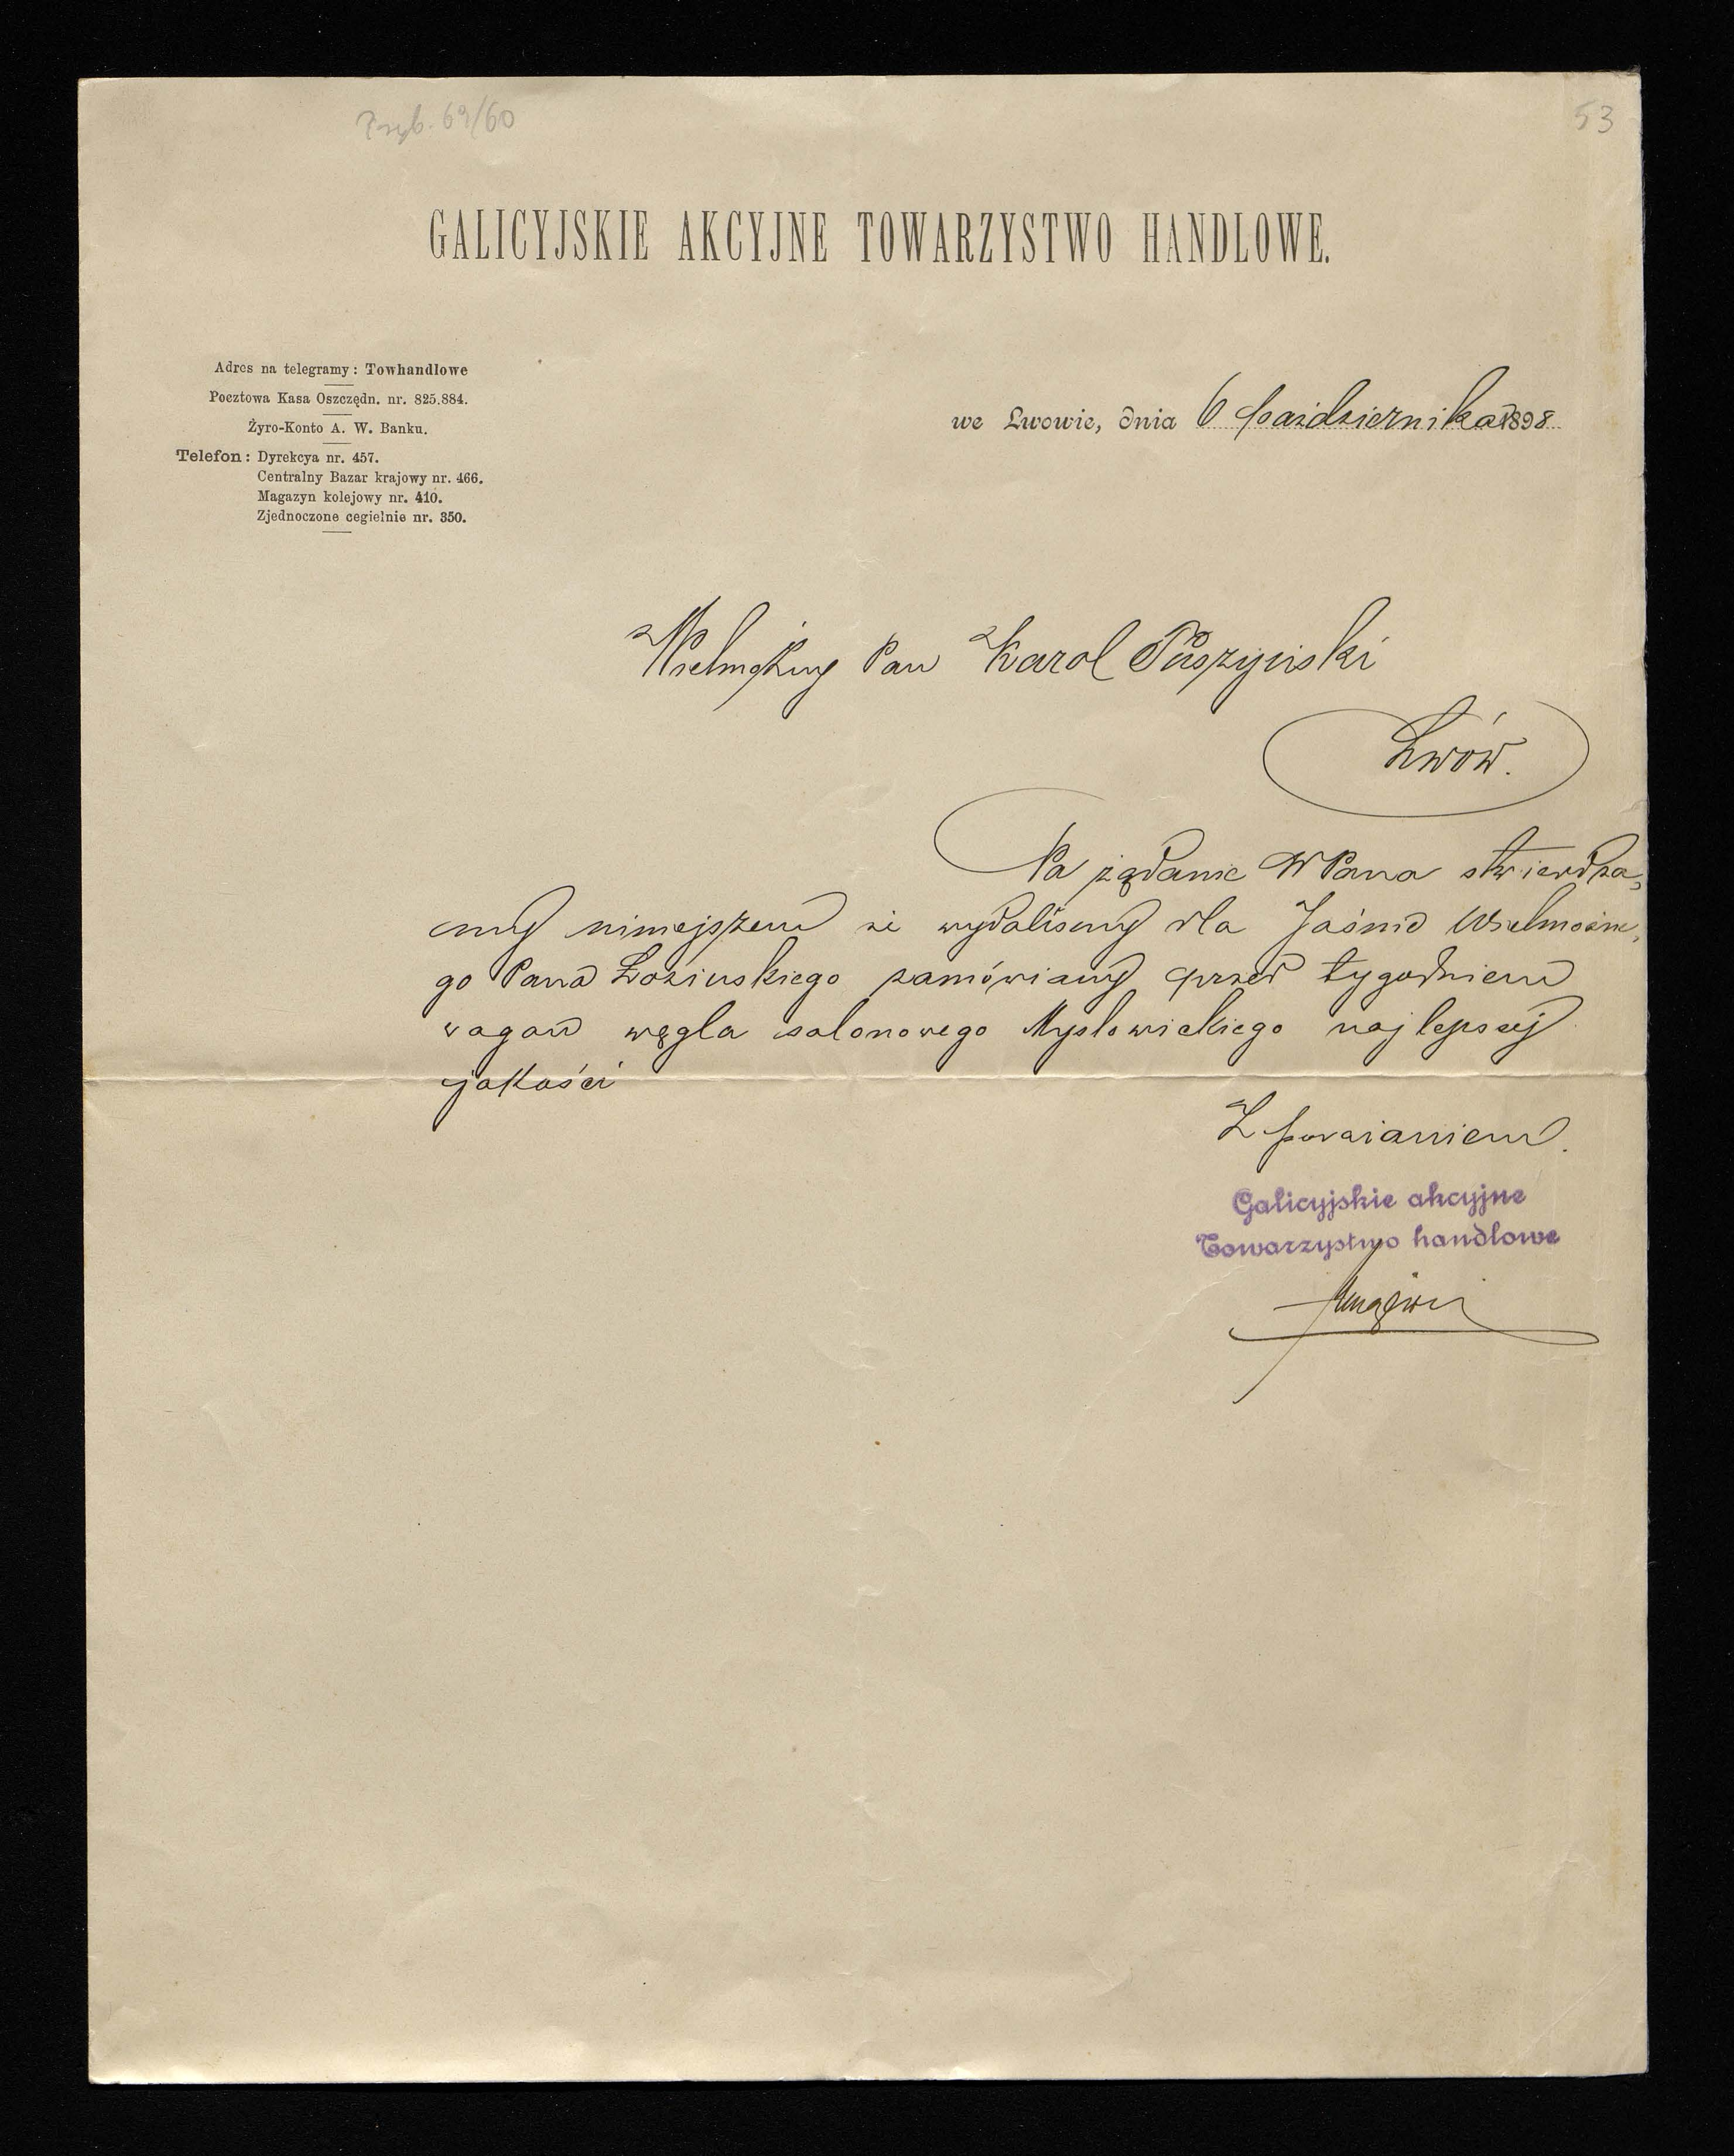 Przyb. 69/60
53
GALICYJSKIE AKCYJNE TOWARZYSTWO HANDLOWE.
Adres na telegramy: Towhandlowe
Pocztowa Kasa Oszczędn. nr. 825.884.
Żyro-Konto A. W. Banku.
Telefon: Dyrekcya nr. 457.
Centralny Bazar krajowy nr. 466.
Magazyn kolejowy nr. 410.
Zjednoczone cegielnie nr. 350.
we Lwowie, dnia 6 października 1898
Wielmożny Pan Karol
Lwów.
Na żądanie WPana stwierdza-
my niniejszem że wydaliśmy dla Jaśnie Wielmożne-
go Pana Łozińskiego zamówiany przed tygodniem
wagon węgla salonowego Mysłowickiego najlepszej
jakości
Z poważaniem.
Galicyjskie akcyjne
Towarzystwo handlowe